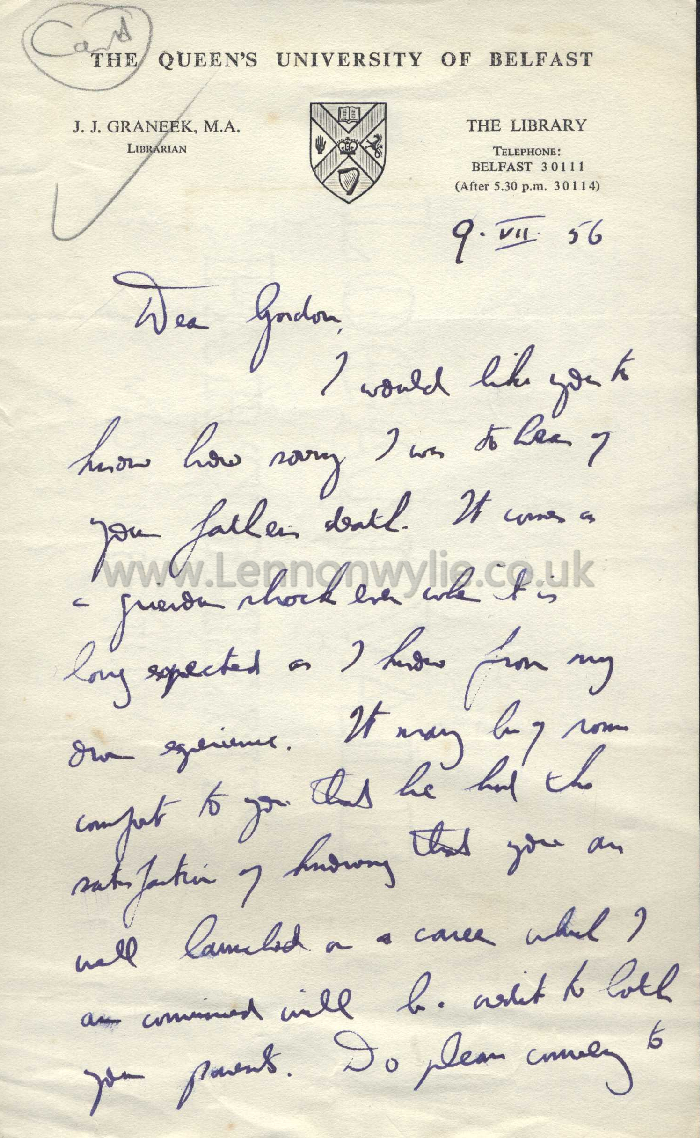 Card
THE QUEEN'S UNIVERSITY OF BELFAST
J. J. GRANEEK, M.A.
LIBRARIAN
THE LIBRARY
TELEPHONE:
BELFAST 30111
(After 5.30 p.m. 30114)
9. VII. 56
Dear Gordon,
I would like you to
know how sorry I was to hear of
your father's death. It comes as
a grievous shock even when it is
long expected as I know from my
own experience. It may be of some
comfort to you that he had the
satisfaction of knowing that you are
well launched on a career which I
am convinced will be a credit to both
your parents. Do please convey to
www.Lennonwylie.co.uk